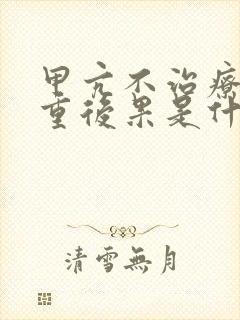 甲亢不治療
重後果是什
清雪無月